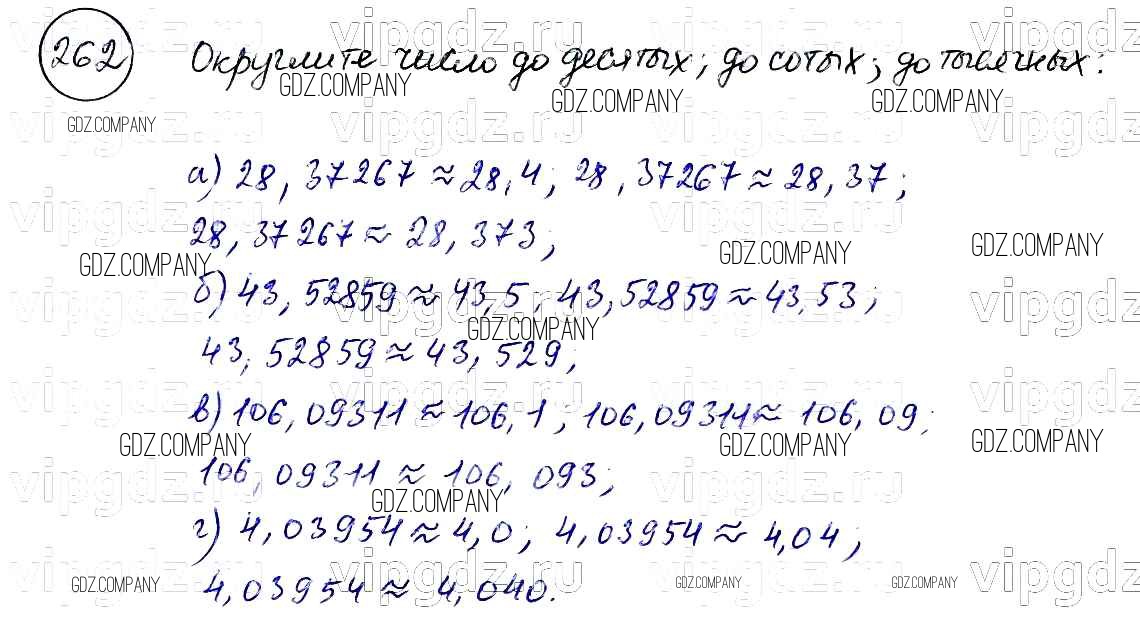 262 Округлите число до десятых; до сотых; до тысячных:
а) 28,37267 ≈ 28,4; 28,37267 ≈ 28,37;
28,37267 ≈ 28,373;
б) 43,52859 ≈ 43,5; 43,52859 ≈ 43,53;
43,52859 ≈ 43,529;
в) 106,09311 ≈ 106,1; 106,09311 ≈ 106,09;
106,09311 ≈ 106,093;
г) 4,03954 ≈ 4,0; 4,03954 ≈ 4,04;
4,03954 ≈ 4,040.
vipgdz.ru
GDZ.COMPANY